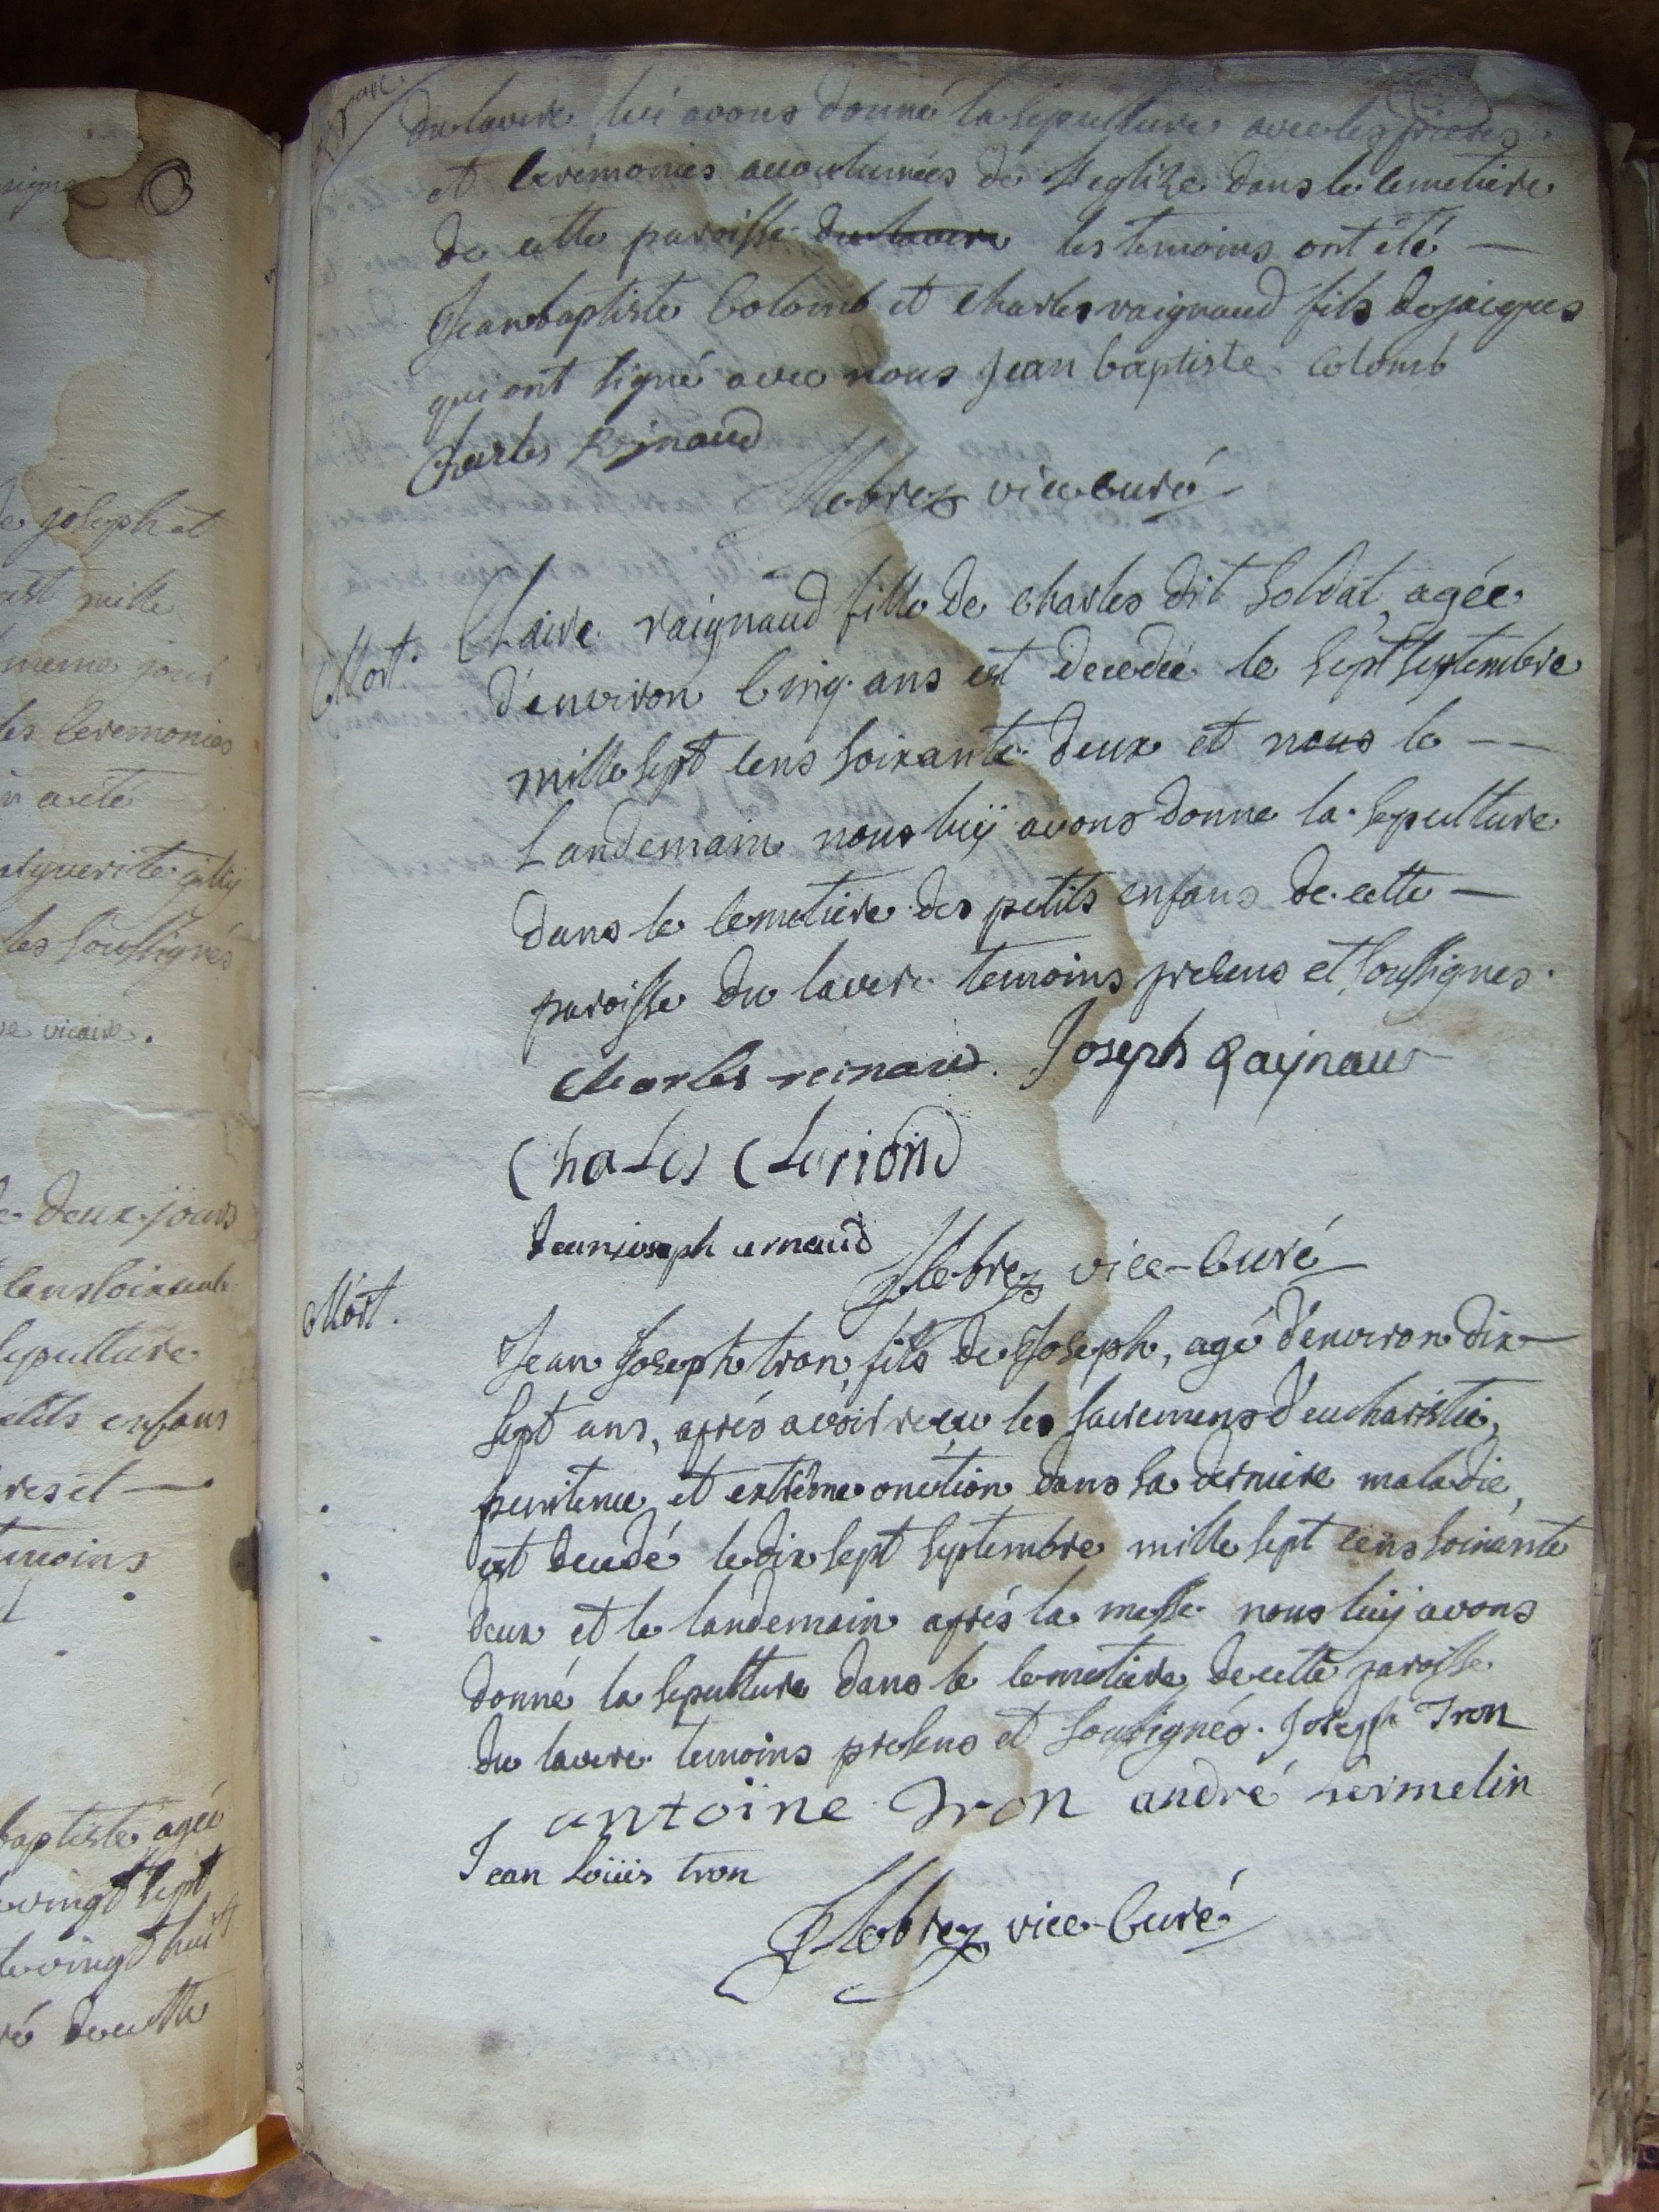 signe
de joseph et
mille
meme jour
les Ceremonies
a eté
les soussignés
vicaire.
de deux jours
cens soixante
sepulture
petits enfans
et —
temoins
baptiste agée
vingt sept
le vingt huit
de cette
du lavere lui avons donné la sepulture avec les prieres
et Cerémonies accoutumées de l'eglize dans le Cemetiere
de cette paroisse du lavere les temoins ont été —
Jean baptiste Colomb et Charles raignaud fils de jacques
qui ont signé avec nous Jean baptiste Colomb
Charles Reinaud
vice curé
Mort.
Claire raignaud fille de Charles dit Soldat, agée
d'environ Cinq ans est decedée le sept septembre
mille sept cens soixante deux et nous le —
Landemain nous luÿ avons donne la sepulture
dans le Cemetiere des petits enfans de cette —
paroisse du lavere temoins presens et soussignes.
Charles reinaud. Joseph Raynaud
Chales Clariond
Jean joseph arnaud
vice-Curé
Mort.
Jean Joseph tron, fils de Joseph, agé d'environ dix
sept ans, aprés avoir reçeu les sacremens d'eucharistie,
penitence et extrême onction dans sa derniere maladie,
est decedé le dix sept septembre mille sept cens soixante
deux et le landemain aprés la messe nous luij avons
donné la sepulture dans le Cemetiere de cette paroisse
du lavere temoins presens et sousignés. Joseph Tron
antoine Tron andré hermelin
Jean Loüis tron
vice-Curé